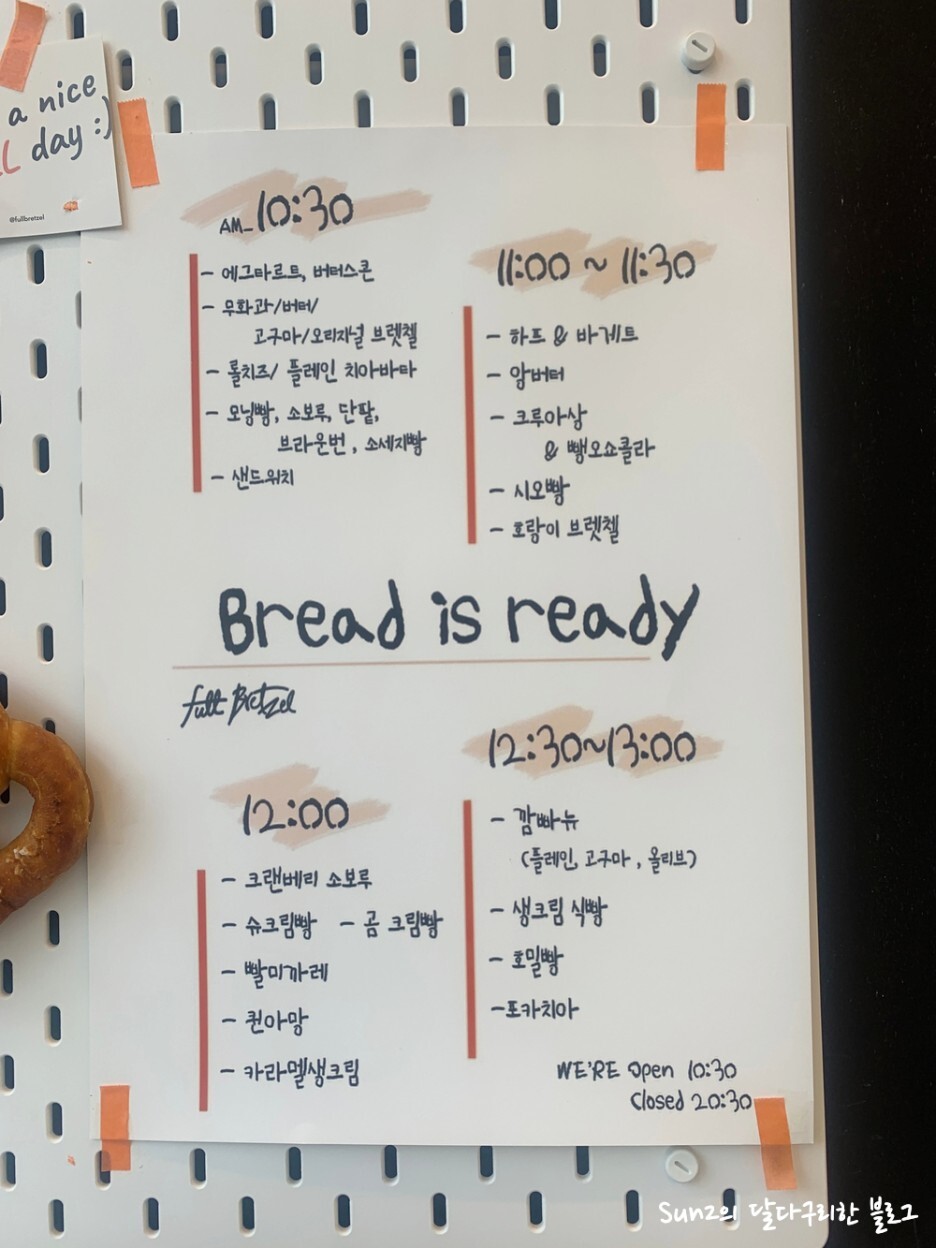 a nice
day :)
@fullbretzel
AM_10:30
- 에그타르트, 버터스콘
- 무화과/버터/
고구마/오리지널 브렛첼
- 롤치즈/ 플레인 치아바타
- 모닝빵, 소보루, 단팥,
브라운번, 소세지빵
- 샌드위치
11:00 ~ 11:30
- 하프 & 바게트
- 앙버터
- 크루아상
& 뺑오쇼콜라
- 시오빵
- 호랑이 브렛첼
Bread is ready
full Bretzel
12:00
- 크랜베리 소보루
- 슈크림빵 - 곰 크림빵
- 빨미까레
- 퀸아망
- 카라멜생크림
12:30~13:00
- 깜빠뉴
(플레인, 고구마, 올리브)
- 생크림 식빵
- 호밀빵
- 포카치아
WE'RE open 10:30
Closed 20:30
Sunz의 달다구리한 블로그